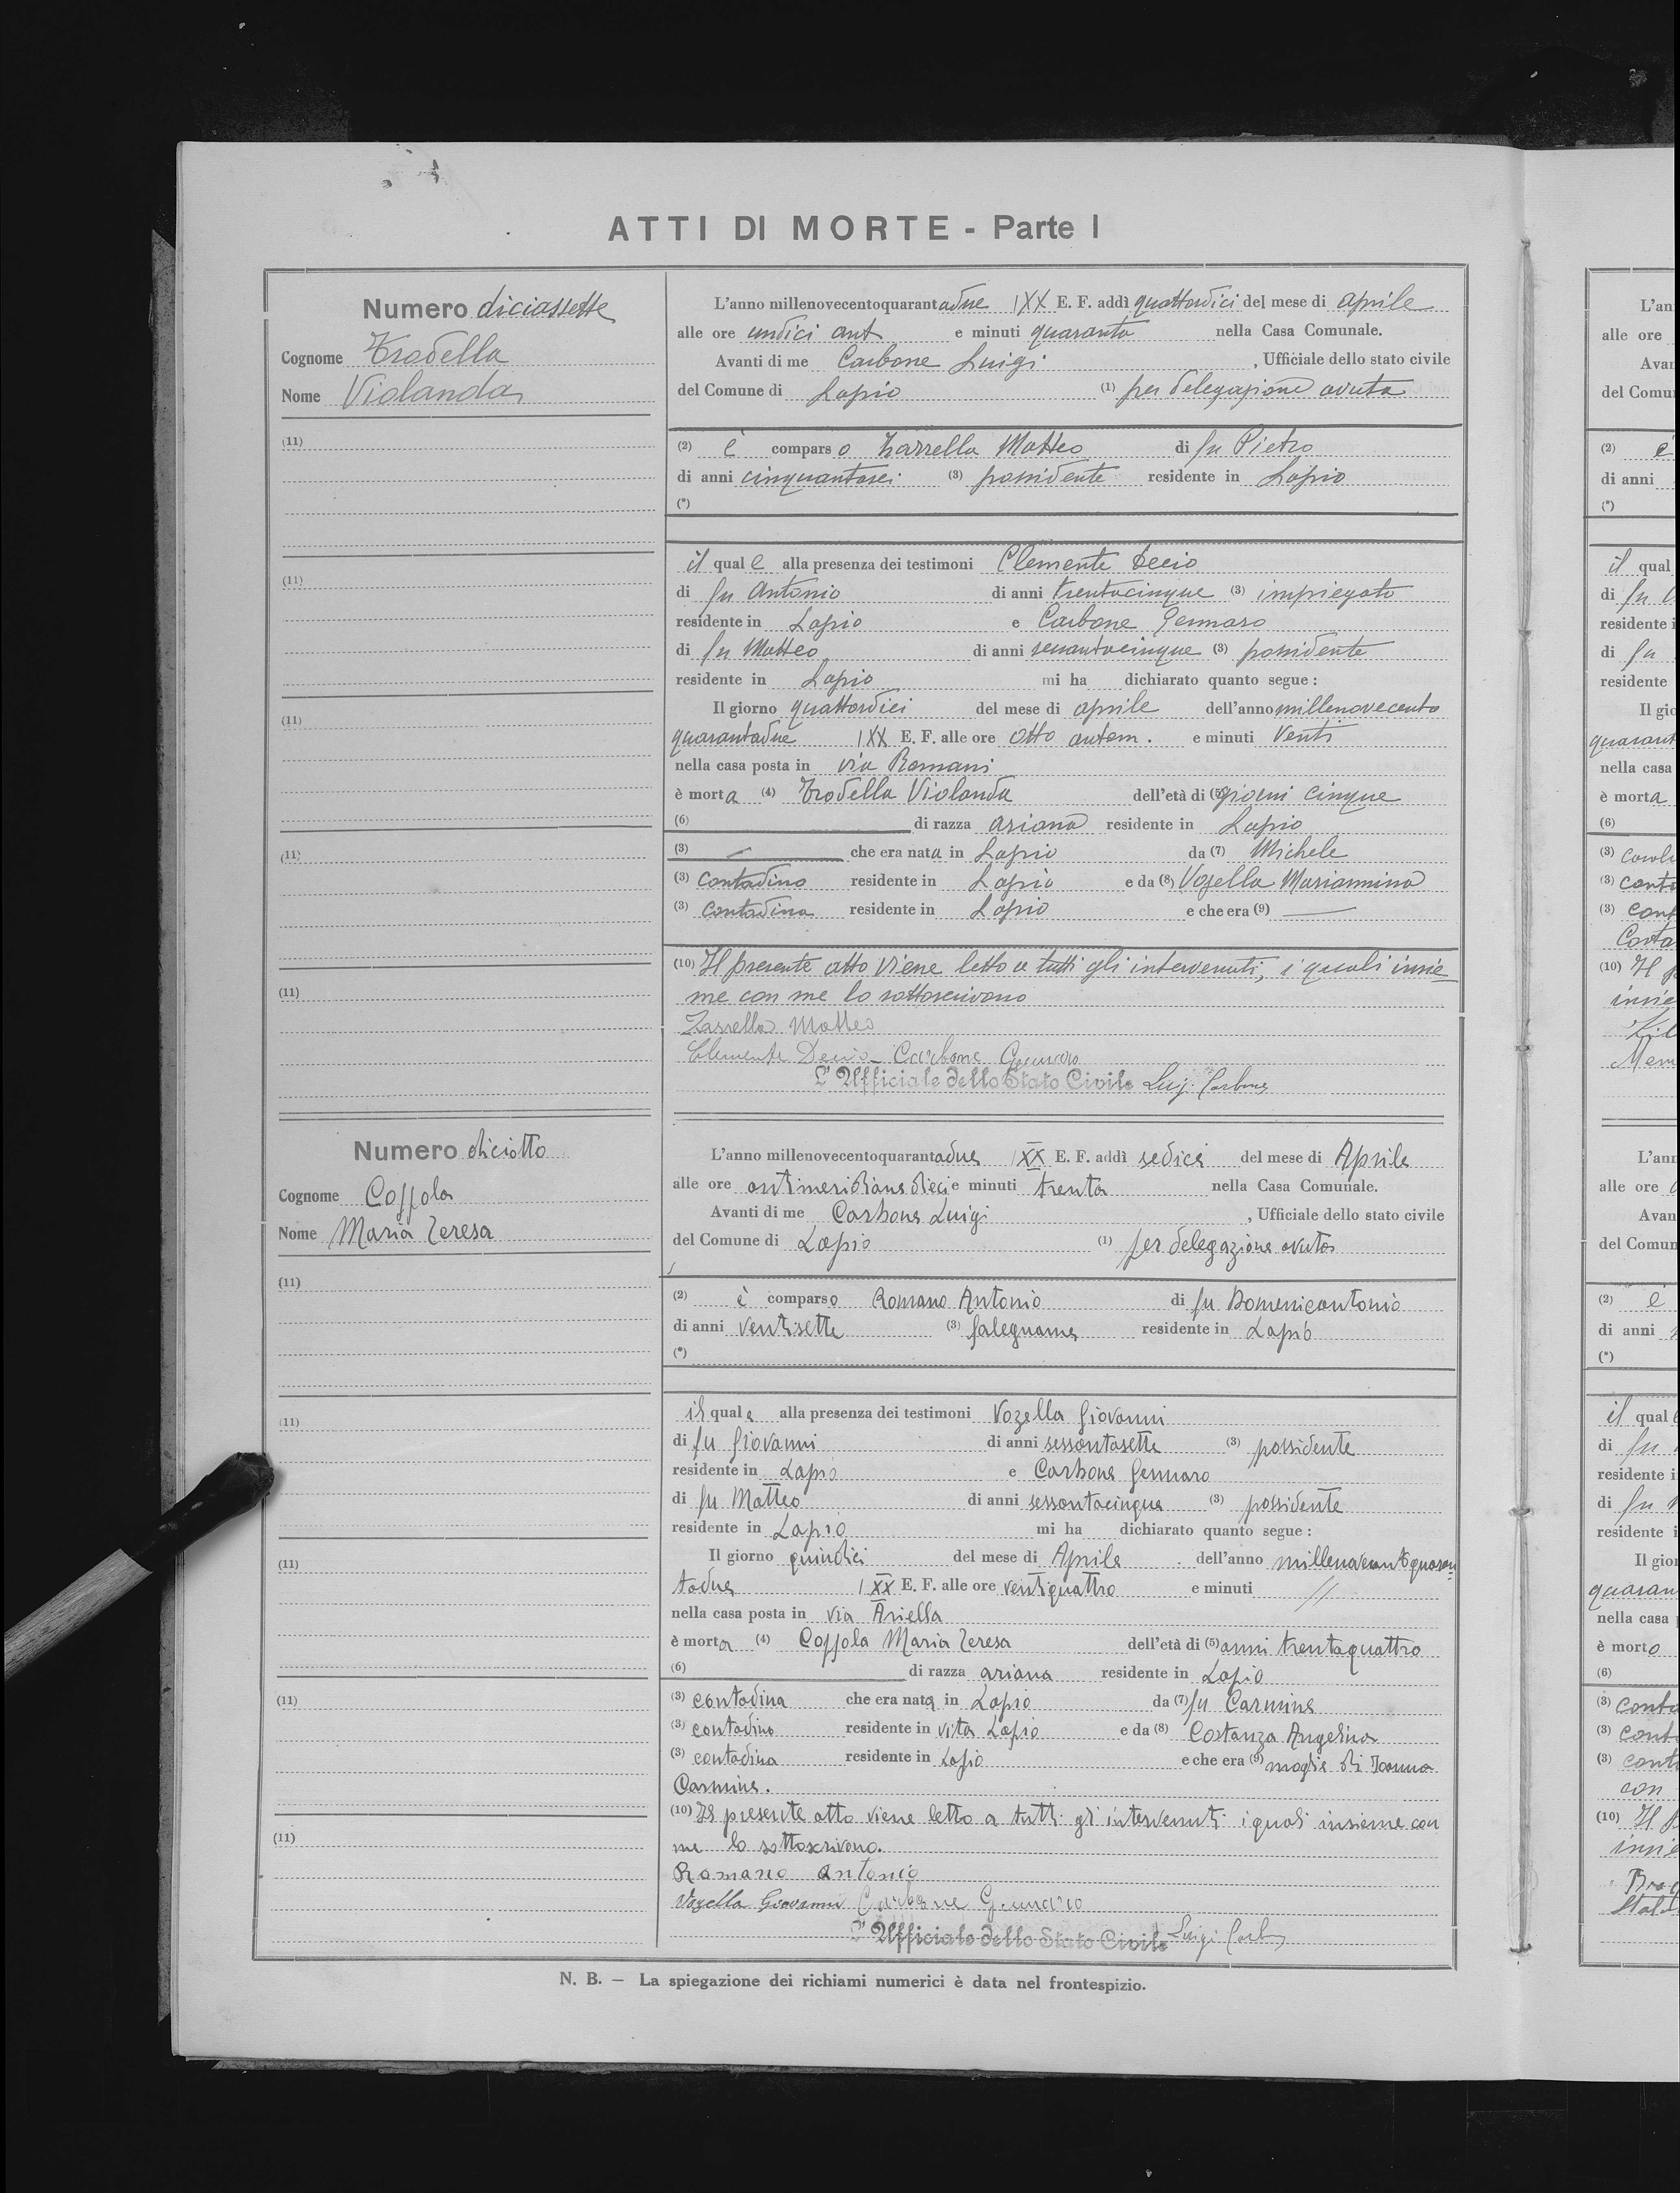 ATTI DI MORTE - Parte I
Numero diciassette
Cognome Trodella
Nome Violanda
(11)
(11)
(11)
(11)
(11)
L'anno millenovecentoquarantadue XX E. F. addì quattordici del mese di aprile
alle ore undici ant e minuti quaranta nella Casa Comunale.
Avanti di me Carbone Luigi, Ufficiale dello stato civile
del Comune di Lapio (1) per delegazione avuta
(2) è comparso Zarrella Matteo di fu Pietro
di anni cinquantasei (3) possidente residente in Lapio
(*)
il quale alla presenza dei testimoni Clemente Decio
di fu Antonio di anni trentacinque (3) impiegato
residente in Lapio e Carbone Gennaro
di fu Matteo di anni sessantacinque (3) possidente
residente in Lapio mi ha dichiarato quanto segue :
Il giorno quattordici del mese di aprile dell'anno millenovecento
quarantadue XX E. F. alle ore otto antem. e minuti venti
nella casa posta in via Romani
è morta (4) Trodella Violanda dell'età di (5) giorni cinque
(6) di razza ariana residente in Lapio
(3) che era nata in Lapio da (7) Michele
(3) contadino residente in Lapio e da (8) Vozella Mariannina
(3) contadina residente in Lapio e che era (9)
(10) Il presente atto viene letto a tutti gli intervenuti, i quali insie-
me con me lo sottoscrivono
Zarrella Matteo
Clemente Decio - Carbone Gennaro
L'Ufficiale dello Stato Civile Luigi Carbone
Numero diciotto
Cognome Coppola
Nome Maria Teresa
(11)
(11)
(11)
(11)
(11)
L'anno millenovecentoquarantadue XX E. F. addì sedici del mese di Aprile
alle ore antimeridiane dieci e minuti trenta nella Casa Comunale.
Avanti di me Carbone Luigi, Ufficiale dello stato civile
del Comune di Lapio (1) per delegazione avuta
(2) è comparso Romano Antonio di fu Domenicantonio
di anni ventisette (3) falegname residente in Lapio
(*)
il quale alla presenza dei testimoni Vozella Giovanni
di fu Giovanni di anni sessantasette (3) possidente
residente in Lapio e Carbone Gennaro
di fu Matteo di anni sessantacinque (3) possidente
residente in Lapio mi ha dichiarato quanto segue :
Il giorno quindici del mese di Aprile dell'anno millenovecentoquaran=
tadue XX E. F. alle ore ventiquattro e minuti //
nella casa posta in via Ariella
è morta (4) Coppola Maria Teresa dell'età di (5) anni trentaquattro
(6) di razza ariana residente in Lapio
(3) contadina che era nata in Lapio da (7) fu Carmine
(3) contadino residente in vita Lapio e da (8) Costanza Angelina
(3) contadina residente in Lapio e che era (9) moglie di
Carmine.
(10) Il presente atto viene letto a tutti gli intervenuti i quali insieme con
me lo sottoscrivono.
Romano Antonio
Vozella Giovanni Carbone Gennaro
L'Ufficiale dello Stato Civile Luigi Carbone
N. B. — La spiegazione dei richiami numerici è data nel frontespizio.
L'an
alle ore
Avan
del Comun
(2) è
di anni
(*)
il qual
di fu
residente i
di fu
residente
Il gio
quarant
nella casa
è morta
(6)
(3)
(3) conta
(3) cont
(10) Il p
insie
L'ann
alle ore
Avan
del Comun
(2) è
di anni
(*)
il qual
di fu
residente i
di fu
residente i
Il gior
quaran
nella casa
è morto
(6)
(3) conta
(3) conta
(3) conta
con
(10) Il p
insie